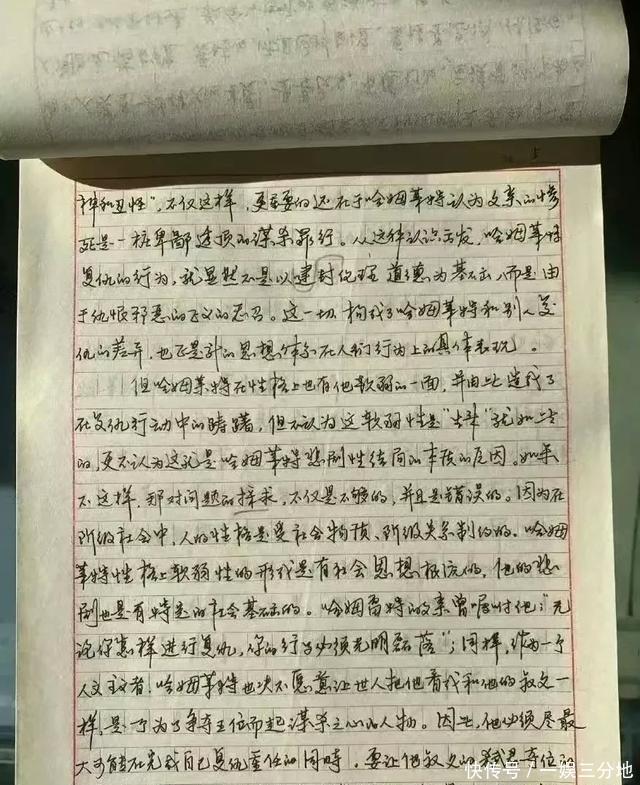 5
神和丑怪"，不仅这样，更重要的还在于哈姆莱特认为父亲的惨
死是一桩卑鄙透顶的谋杀罪行。从这种认识出发，哈姆莱特
复仇的行为，就显然不是以封建伦理道德为基石，而是由
于仇恨邪恶的正义的志召。这一切构成了哈姆莱特和别人复
仇的差异，也正是新的思想体系在人们行为上的具体表现。
但哈姆莱特在性格上也有他软弱的一面，并由此造成了
在复仇行动中的踌躇，但不认为这软弱性是"生来"就如此
的，更不认为这就是哈姆莱特悲剧性结局的本质的原因。如果
不这样，那对问题的探求，不仅是不够的，并且是错误的。因为在
阶级社会中，人的性格是受社会物质、阶级关系制约的。哈姆
莱特性格上软弱性的形成是有社会思想根源的，他的悲
剧也是有特定的社会基石的。哈姆雷特的父亲曾嘱咐他："无
论你怎样进行复仇，你的行事必须光明磊落"；同样，作为一个
人文主义者，哈姆莱特也决不愿意让世人把他看成和他的叔父一
样，是一个为了争夺王位而起谋杀之心的人物。因此，他必须尽最
大可能在完成自己复仇重任的同时，要让他叔父的弑君夺位
快传号／一娱三分地